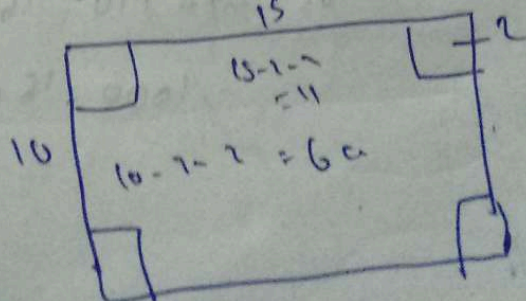 15
2
15-2-2
=11
10
10-2-2 = 6